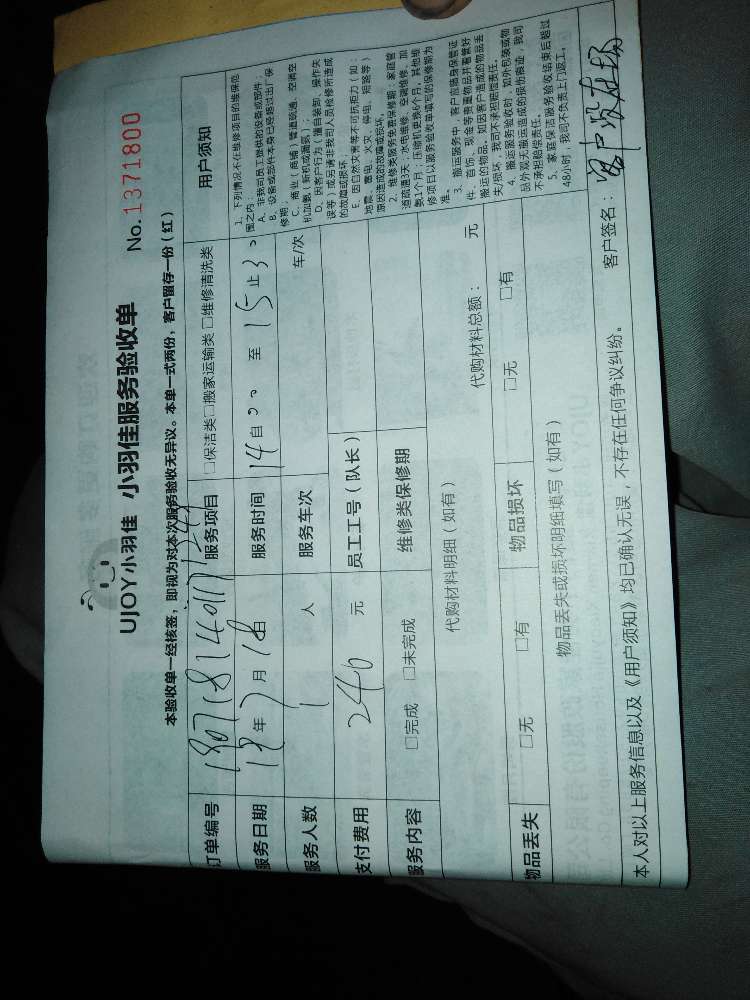 UJOY小羽佳 小羽佳服务验收单
No.1371800
本验收单一经核签，即视为对本次服务验收无异议。本单一式两份，客户留存一份（红）
订单编号 服务项目 □保洁类□搬家运输类□维修清洗类
服务日期 年7月18日 服务时间 14自00至15止30
服务人数 1人 服务车次 车/次
支付费用 240元 员工工号（队长）
服务内容 □完成 □未完成 维修类保修期
代购材料明细（如有） 代购材料总额： 元
物品丢失 □无 □有 物品损坏 □无 □有
物品丢失或损坏明细填写（如有）
用户须知
1、下列情况不在维修项目的维保范
围之内：
A、非我司员工提供的设备或部件；
B、设备或部件本身已经超过出厂保
修期；
C、商业（商铺）管道疏通、空调空
机加氨（新机或漏氨）；
D、因客户行为（擅自装卸、操作失
误等）或另请非我司人员检修所造成
的故障或损坏；
E、因自然灾害等不可抗拒力（如：
地震、雷电、火灾、停电、短路等）
原因造成的故障或损坏。
2、维修类服务免费保修期：家庭管
道疏通3天；水电维修、空调维修、加
氨1个月；压缩机更换6个月，其他维
修项目以服务验收单填写的保修期为
准。
3、搬运服务中，客户应随身保管证
件、首饰、现金等贵重物品并看管好
搬运的物品。如因客户造成的物品丢
失/损坏，我司不承担赔偿责任。
4、搬运服务验收时，如外包装或物
品外观无搬运造成的损伤痕迹，我司
不承担赔偿责任。
5、家庭保洁服务验收结束后超过
48小时，我司不负责上门返工。
本人对以上服务信息以及《用户须知》均已确认无误，不存在任何争议纠纷。 客户签名：客户没在场